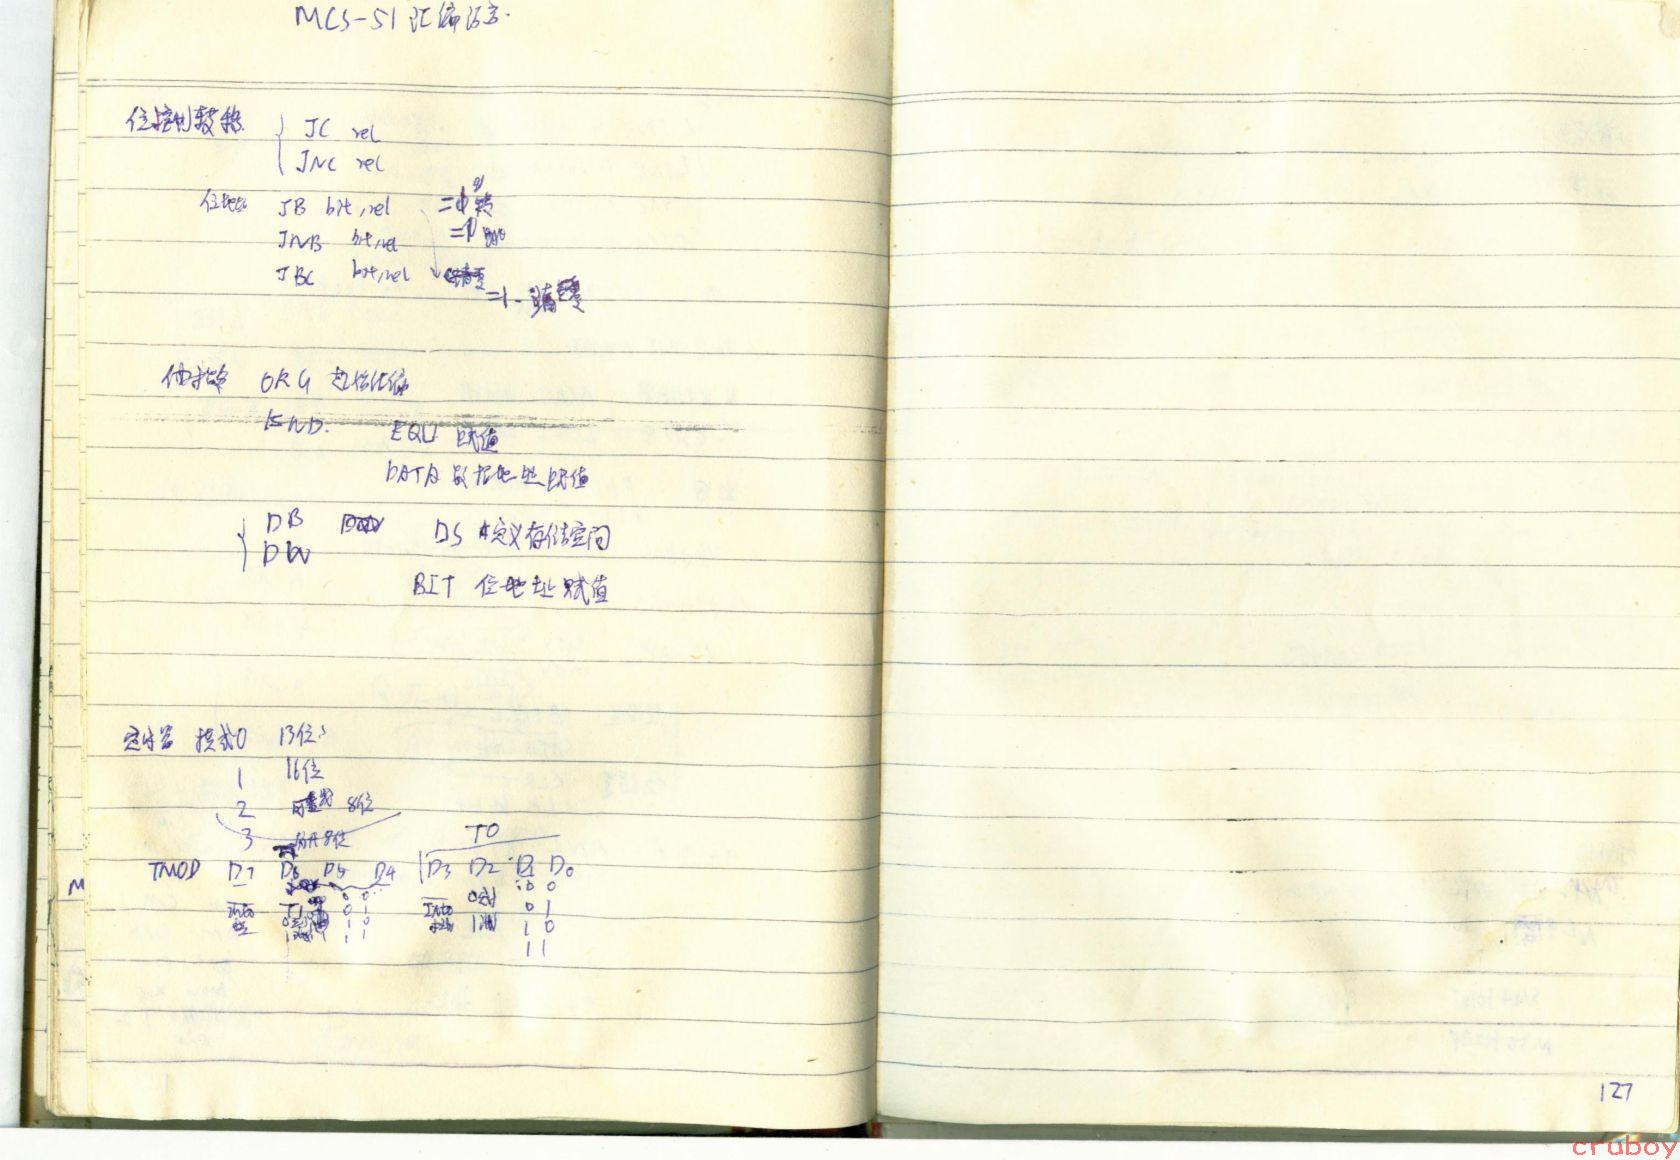 MCS-51 汇编语言.
位控制转移 JC rel
JNC rel
位地址 JB bit,rel =1转
JNB bit,rel =0
JBC bit,rel 清零
=1. 清零
伪指令 ORG 起始汇编
END. EQU 赋值
DATA 数据地址赋值
DB DS 定义存储空间
DW
BIT 位地址赋值
定时器 模式0 13位
1 16位
2 可重 8位
3 8位
T0
TMOD D7 D6 D5 D4 D3 D2 D1 D0
0 0 0定时 0 0
INT0 0 1 0 1
1 0 1 0
1 1 1 1
M
127
cruboy